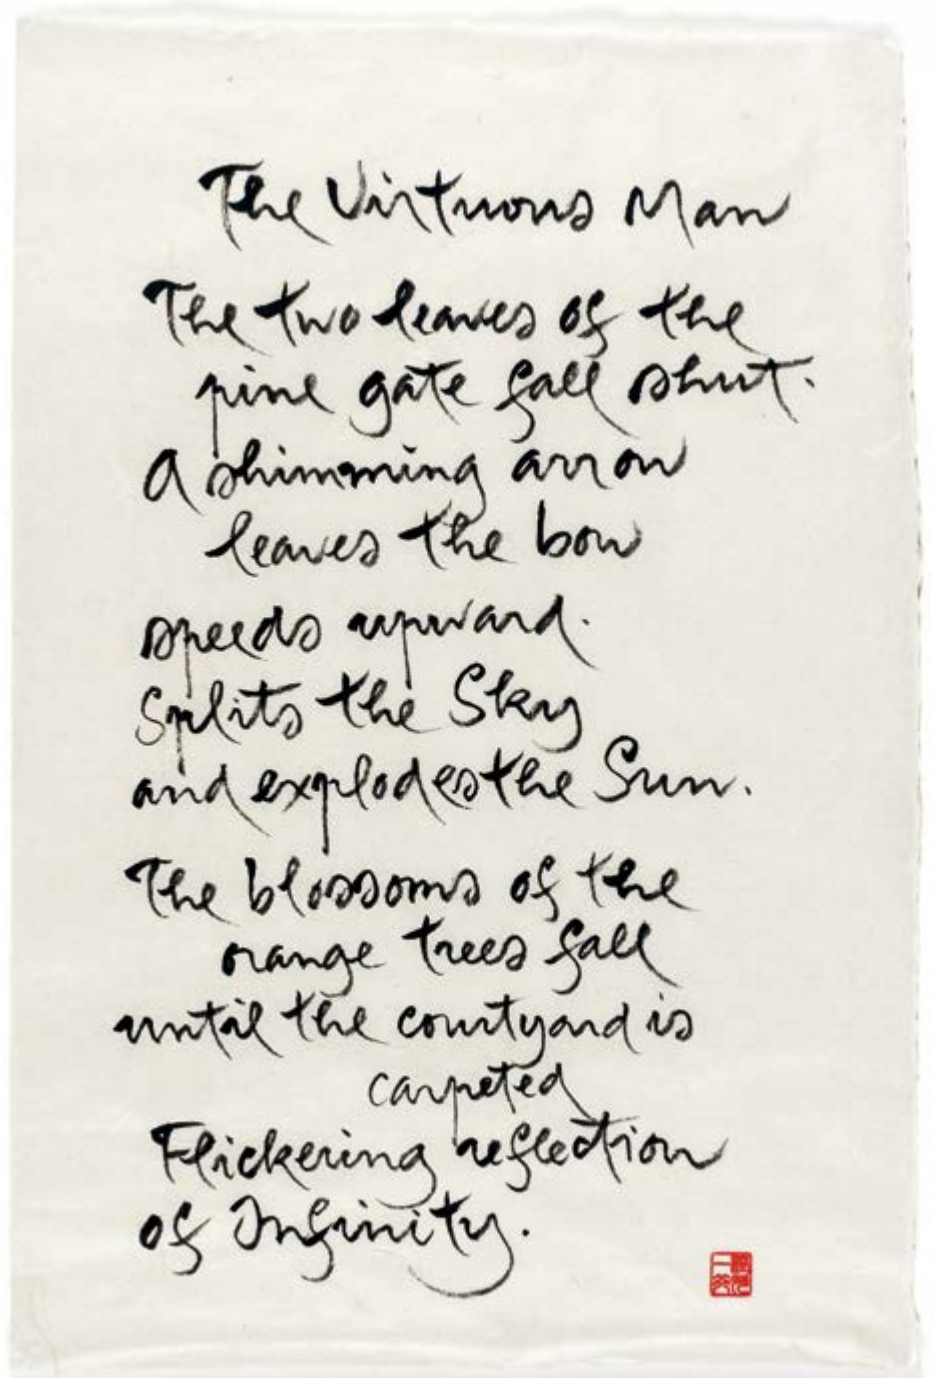 The Virtuous Man
The two leaves of the
pine gate fall shut.
A shimming arrow
leaves the bow
speeds upward.
Splits the Sky
and explodes the Sun.
The blossoms of the
orange trees fall
until the courtyard is
carpeted
Flickering reflection
of Infinity.